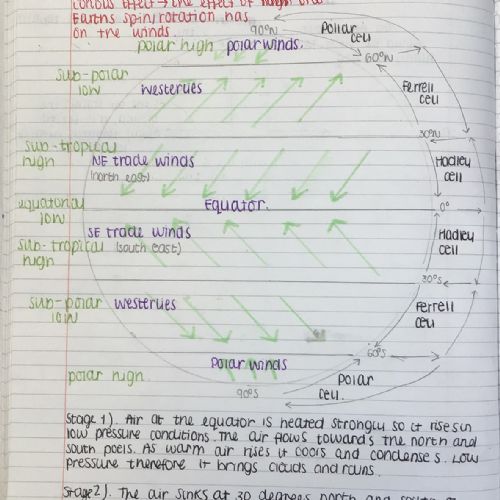 Earths spin/rotation has
on the winds.
90°N
Pollar cell
polar high
polar winds.
60°N
sub-polar low
westerlies
Ferrell cell
30°N
sub-tropical high
NE trade winds
(north east)
Hadley cell
equatorial low
Equator.
0°
SE trade winds
(south east)
Hadley cell
sub-tropical high
30°S
sub-polar low
westerlies
Ferrell cell
60°S
Polar winds
polar high
90°S
Polar cell.
Stage 1). Air at the equator is heated strongly so it rises in
low pressure conditions. The air flows towards the north and
south poels. As warm air rises it cools and condenses. Low
pressure therefore it brings clouds and rains.
Stage 2). The air sinks at 30 degrees north and south